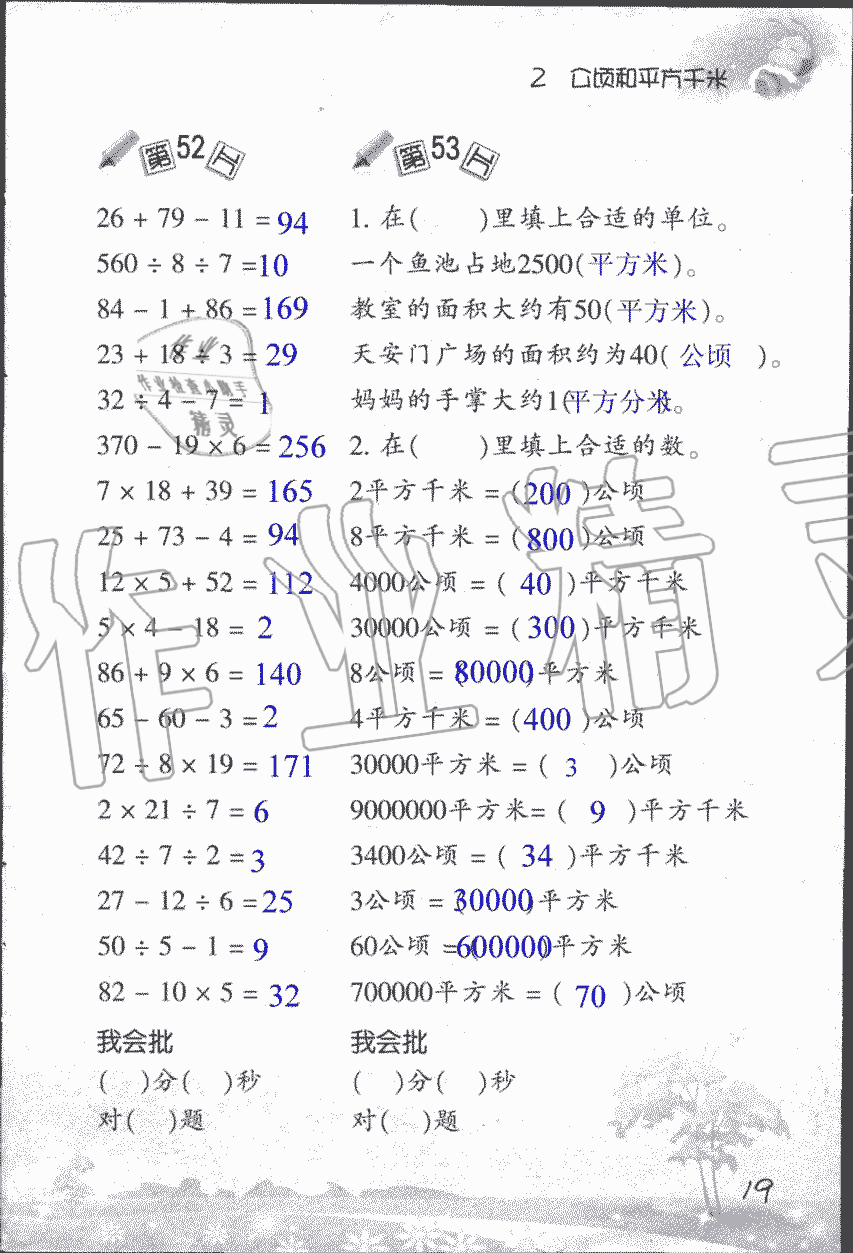 2 公顷和平方千米
第52工
26 + 79 - 11 = 94
560 ÷ 8 ÷ 7 =10
84 - 1 + 86 = 169
23 + 18 ÷ 3 = 29
32 ÷ 4 - 7 = 1
370 - 19 × 6 = 256
7 × 18 + 39 = 165
25 + 73 - 4 = 94
12 × 5 + 52 = 112
5 × 4 - 18 = 2
86 + 9 × 6 = 140
65 - 60 - 3 = 2
72 ÷ 8 × 19 = 171
2 × 21 ÷ 7 = 6
42 ÷ 7 ÷ 2 = 3
27 - 12 ÷ 6 = 25
50 ÷ 5 - 1 = 9
82 - 10 × 5 = 32
我会批
( )分( )秒
对( )题
第53工
1. 在( )里填上合适的单位。
一个鱼池占地2500(平方米)。
教室的面积大约有50(平方米)。
天安门广场的面积约为40( 公顷 )。
妈妈的手掌大约1(平方分米)。
2. 在( )里填上合适的数。
2平方千米 = (200 )公顷
8平方千米 = (800 )公顷
4000公顷 = ( 40 )平方千米
30000公顷 = ( 300 )平方千米
8公顷 = (80000)平方米
4平方千米 = (400 )公顷
30000平方米 = ( 3 )公顷
9000000平方米= ( 9 )平方千米
3400公顷 = ( 34 )平方千米
3公顷 = (30000)平方米
60公顷 =(600000)平方米
700000平方米 = ( 70 )公顷
我会批
( )分( )秒
对( )题
作业检查小助手
精灵
作业精灵
19